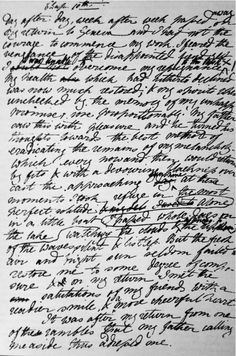 Chap. 10th
Day after day, week after week passed away
my return to Geneva and I had not the
courage to commence my work. I feared the
vengeance of the disappointed
overcome my repugnance
My health which had hitherto declined
was now much restored; & my spirits when
unchecked by the memory of my unhappy
promise, rose proportionably. My father
saw this with pleasure and he turned his
thoughts toward the best method of
eradicating the remains of my melancholy
which every now and then would return
by fits & with a devouring blackness over
cast the approaching At these
moments I took refuge in the most
perfect solitude
in a little boat whole days on
the lake I watching the clouds &
of the waves silent & listless But the fresh
air and bright sun seldom failed to
restore me to some degree
& on my return I met the
salutations of my friend with a
readier smile & more cheerful heart
It was after my return from one
of these rambles that my father calling
me aside thus adressed me.